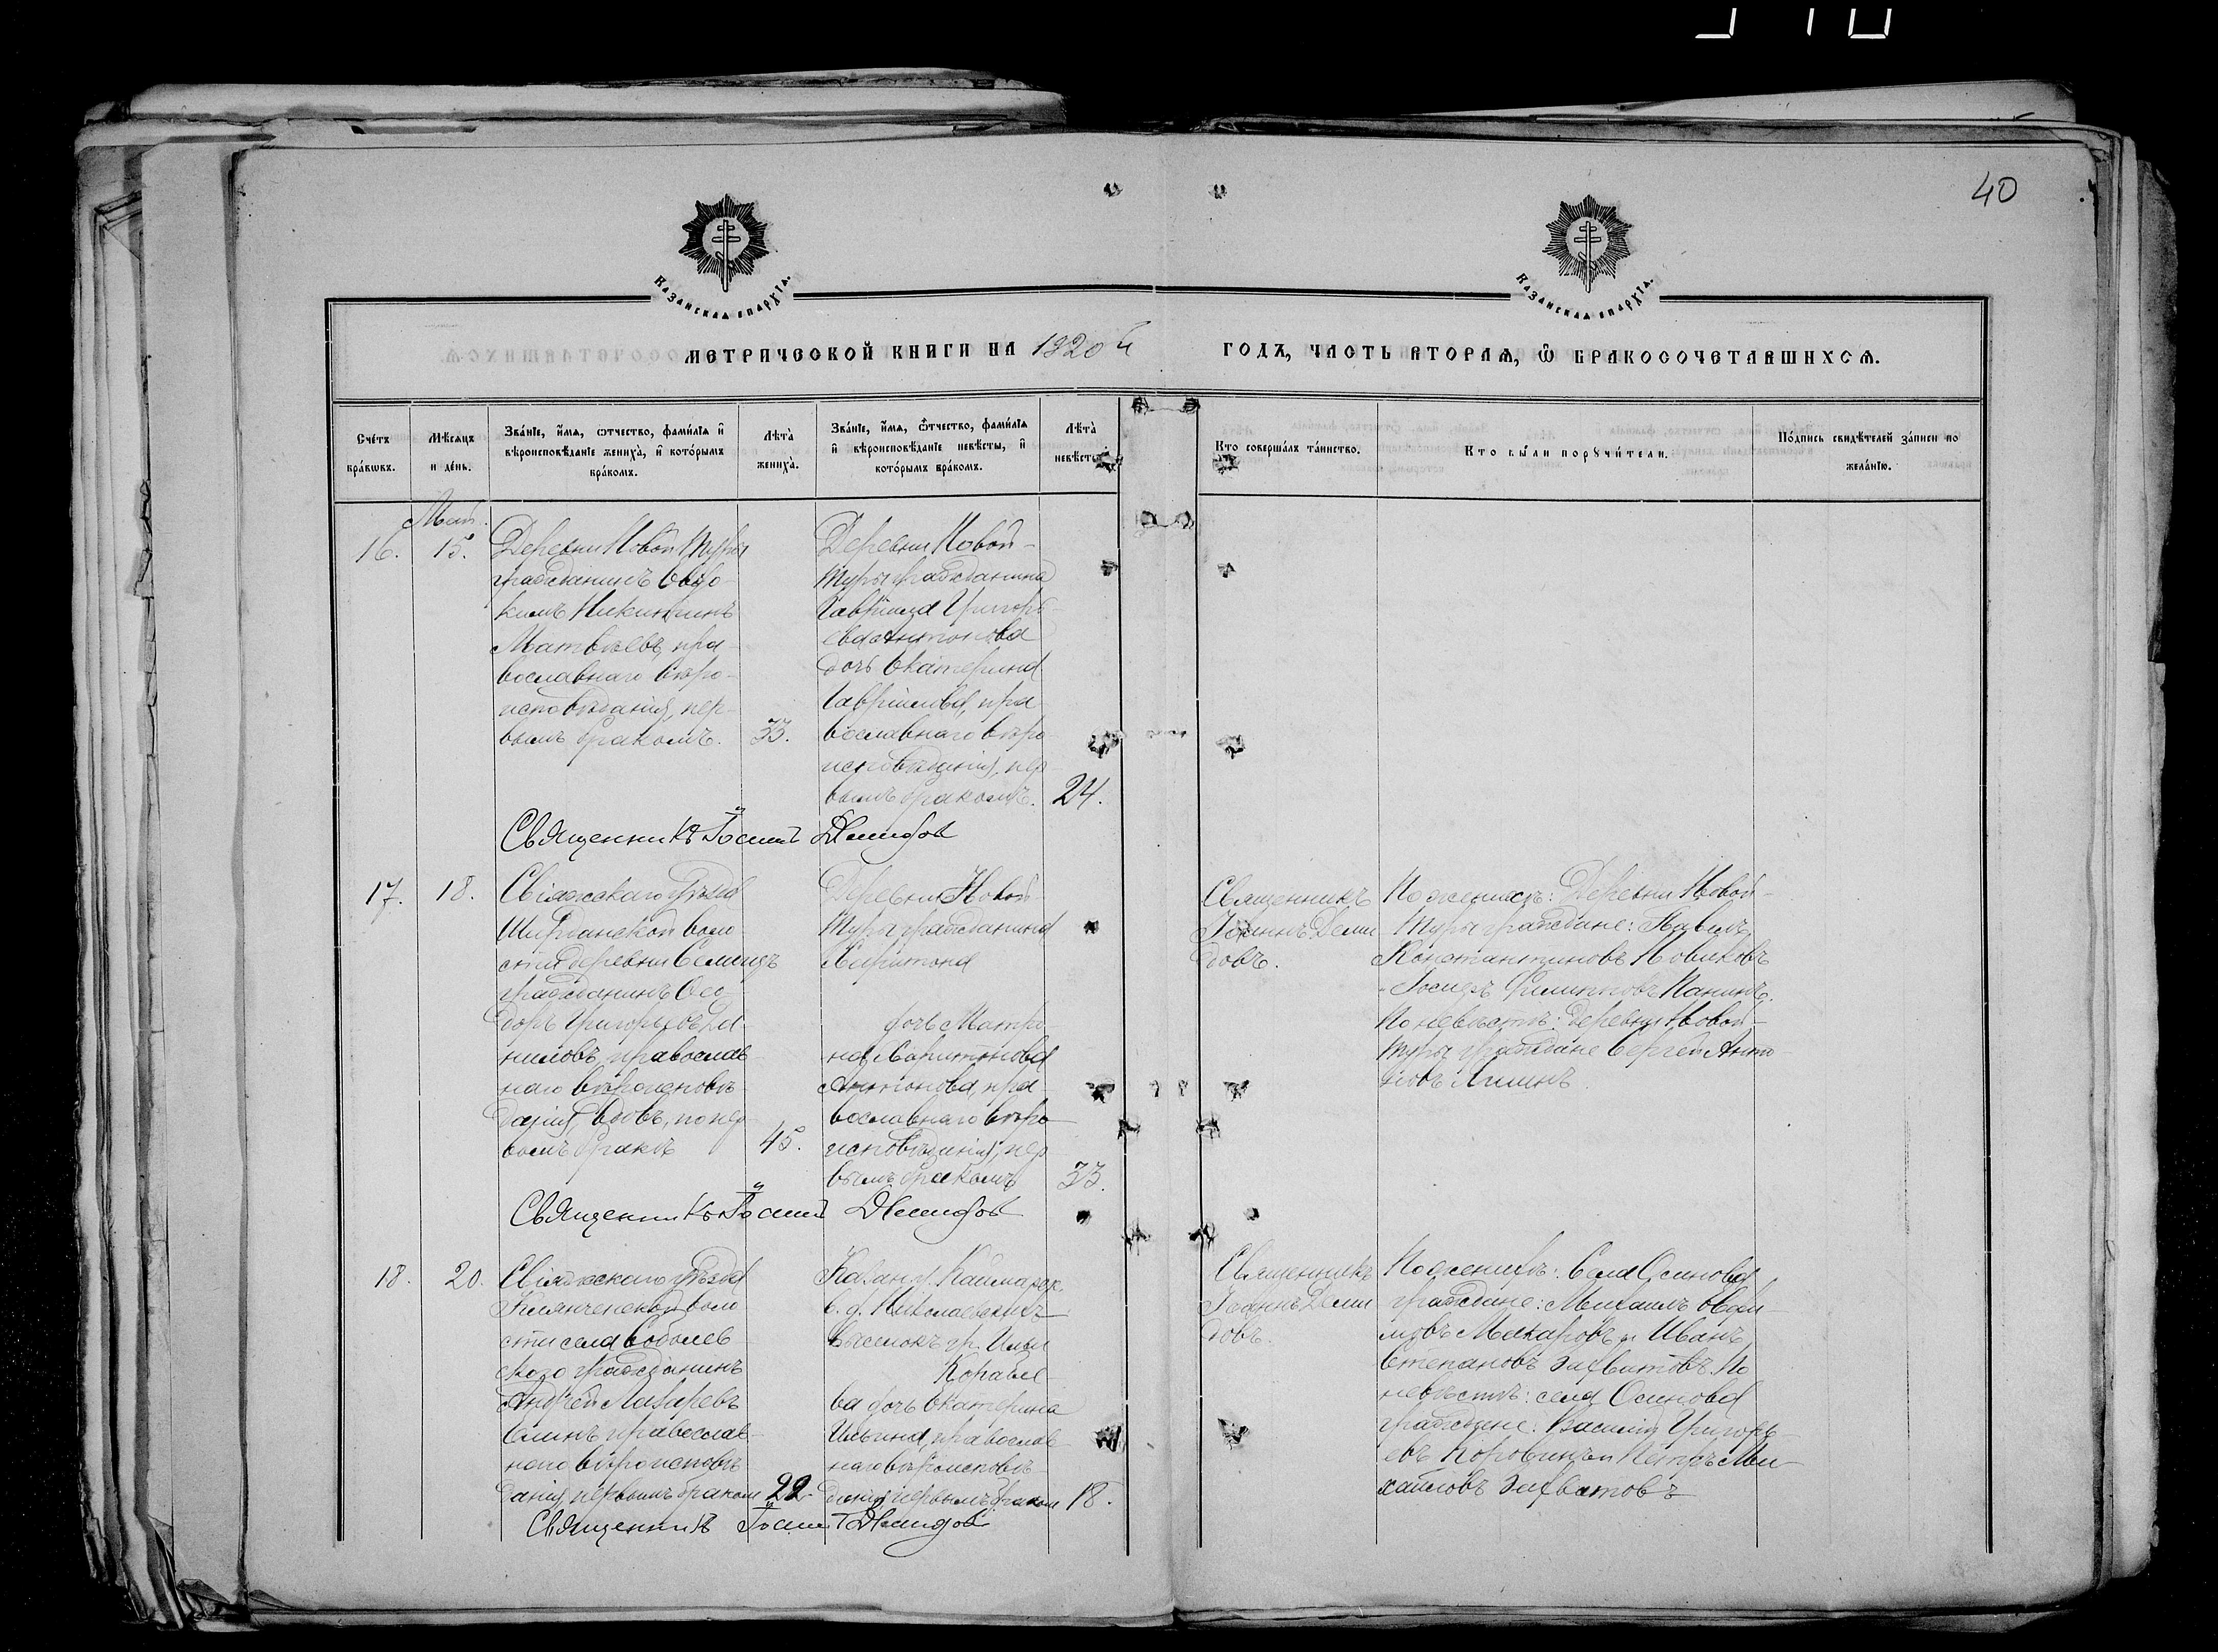 40
КАЗАНСКАѦ ЕПАРХІА.
КАЗАНСКАѦ ЕПАРХІА.
МЕТРИЧЕСКОЙ КНИГИ НА 1920й ГОДЪ, ЧАСТЬ ВТОРАѦ, Ѽ БРАКОСОЧЕТАВШИХСѦ.
Счетъ браковъ.
Мѣсяцъ и день.
Званіе, имя, отчество, фамилія и
вѣроисповѣданіе жениха, и которымъ
бракомъ.
Лѣта
жениха.
Званіе, имя, отчество, фамилія
и вѣроисповѣданіе невѣсты, и
которымъ бракомъ.
Лѣта
невѣсты.
Кто совершалъ таинство.
Кто были поручители.
Подпись свидѣтелей записи по
желанію.
Май.
16. 15.
Деревни Новой Туры
гражданинъ
Никитинъ
Матвѣевъ, пра-
вославнаго вѣро-
исповѣданія, пер-
вымъ бракомъ. 33.
Деревни Новой-
Туры гражданина
Гавріила Григорь-
ева Антонова
дочь Екатерина
Гавріилова, пра-
вославнаго вѣро-
исповѣданія, пер-
вымъ бракомъ. 24.
Священникъ Іоаннъ Демидов
17. 18.
Свіяжскаго уѣзда
Ширданской воло-
сти деревни
гражданинъ Ѳео-
доръ Григорьевъ Да-
ниловъ, православ-
наго вѣроисповѣ-
данія, вдовъ, по пер-
вомъ бракѣ 45.
Деревни Новой-
Туры гражданина
Харитона
дочь Матро-
на Харитонова
Антонова, пра-
вославнаго вѣро-
исповѣданія, пер-
вымъ бракомъ 33.
Священникъ
Іоаннъ Деми-
довъ.
По женихѣ: Деревни Новой-
Туры граждане: Павелъ
Константиновъ Новиковъ
Іосифъ Филипповъ Панинъ.
По невѣстѣ: деревни Новой-
Туры граждане Сергей Анто-
новъ
Священникъ Іоаннъ Демидов
18. 20.
Свіяжскаго уѣзда
воло-
сти села Соболев-
скаго гражданинъ
Андрей Лазаревъ
православ-
наго вѣроисповѣ-
данія, первымъ браком 22.
Казан. у. Каймарск.
в. д. Николаевскихъ
Выселокъ гр. Ильи
Корале-
ва дочь Екатерина
Ильина, православ-
наго вѣроисповѣ-
данія, первымъ браком 18.
Священникъ
Іоаннъ Деми-
довъ.
По женихѣ: Села Осинова
граждане: Михаилъ
Макаровъ и Иванъ
Степановъ Захватовъ. По
невѣстѣ: села Осинова
граждане: Василій Григорь-
евъ Коровинъ и Петръ Ми-
хайловъ Захватовъ
Священникъ Іоаннъ Демидов